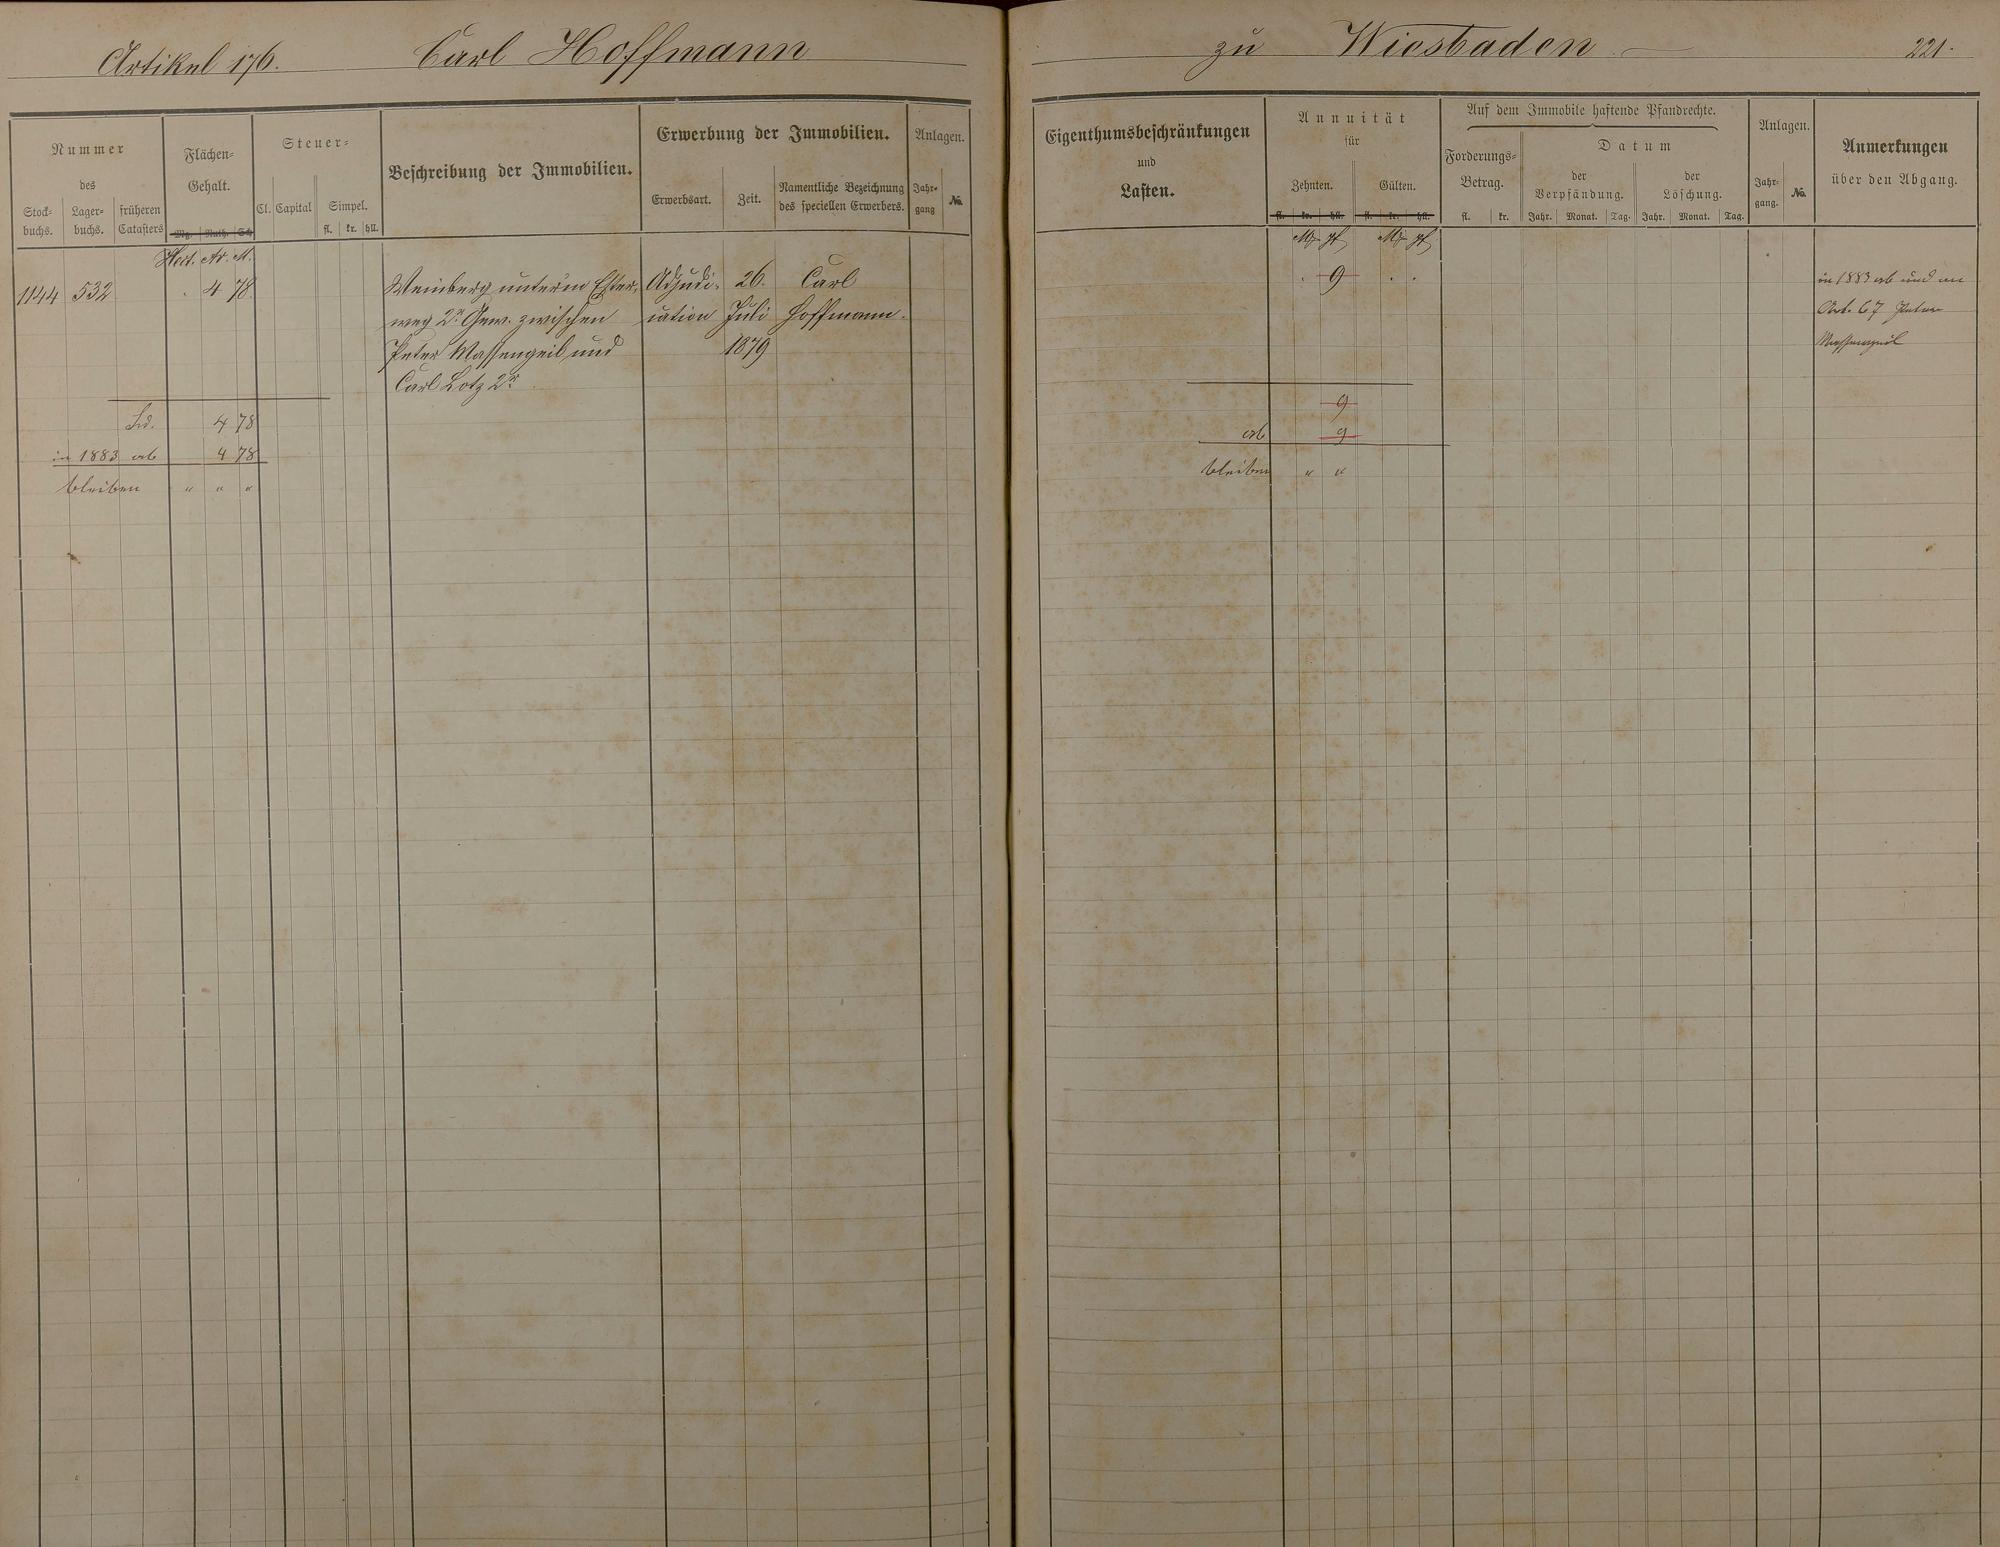 Artikel 176. Carl Hoffmann
zu Wiesbaden 221.
Nummer
des
Stock-
buchs.
Lager-
buchs.
früheren
Catasters
Flächen-
Gehalt.
Mg. Ruth. Sch
Steuer-
Cl. Capital
Simpel.
fl. kr. hll.
Beschreibung der Immobilien.
Erwerbung der Immobilien.
Erwerbsart. Zeit.
Namentliche Bezeichnung
des speciellen Erwerbers.
Anlagen.
Jahr-
gang
No.
Hect. Ar. M.
1144 532 . 4 78. Weinberg unterm
weg 2r Gew. zwischen
Peter Massengeil und
Carl Lotz 2r
Adjudi-
cation
26.
Juli
1879
Carl
Hoffmann.
Sa. 4 78
in 1883 ab 4 78
bleiben " " "
Eigenthumsbeschränkungen
und
Lasten.
Annuität
für
Zehnten. Gülten.
fl. kr. hll. fl. kr. hll.
Auf dem Immobile haftende Pfandrechte.
Forderungs-
Betrag.
fl. kr.
Datum
der
Verpfändung.
Jahr. Monat. Tag.
der
Löschung.
Jahr. Monat. Tag.
Anlagen.
Jahr-
gang.
No.
Anmerkungen
über den Abgang.
M pf M pf
. 9 . .
in 1883 ab und an
Art. 67 Peter
Massengeil
9
ab 9
bleiben " "